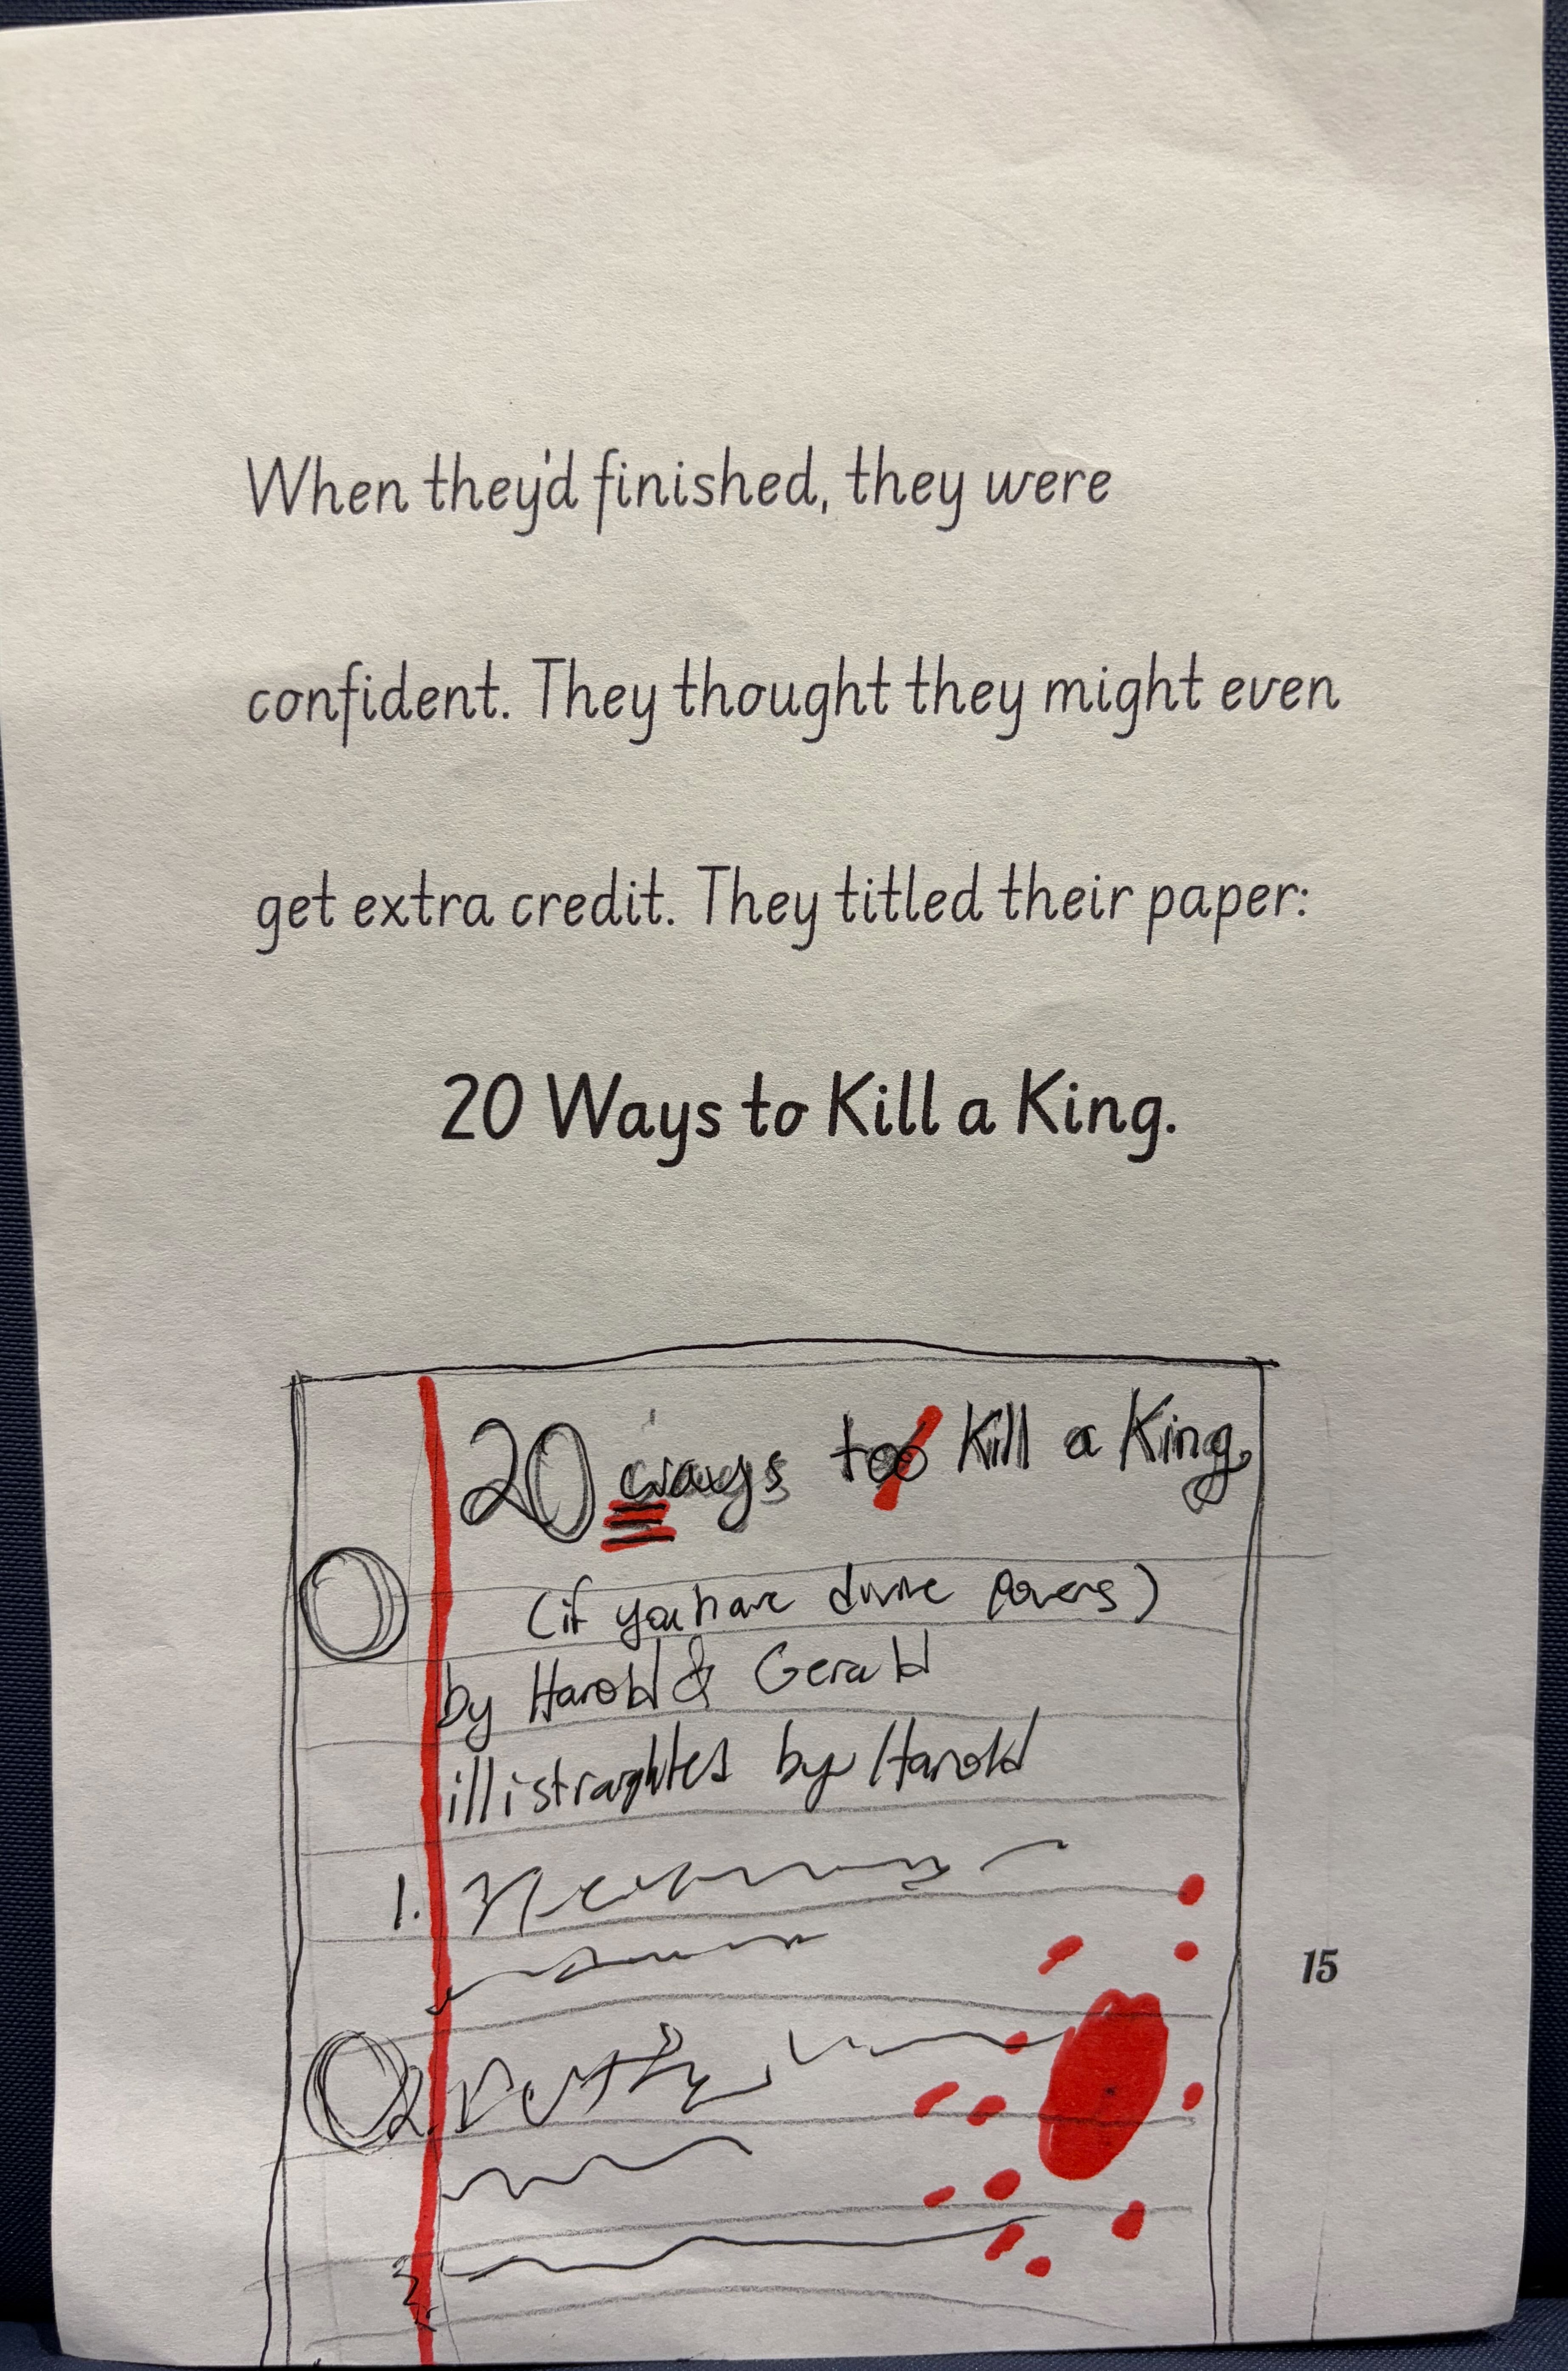 When they'd finished, they were
confident. They thought they might even
get extra credit. They titled their paper:
20 Ways to Kill a King.
20 ways too Kill a King.
(if you have divine powers)
by Harold & Gerald
by Harold
1.
15
2.
3.